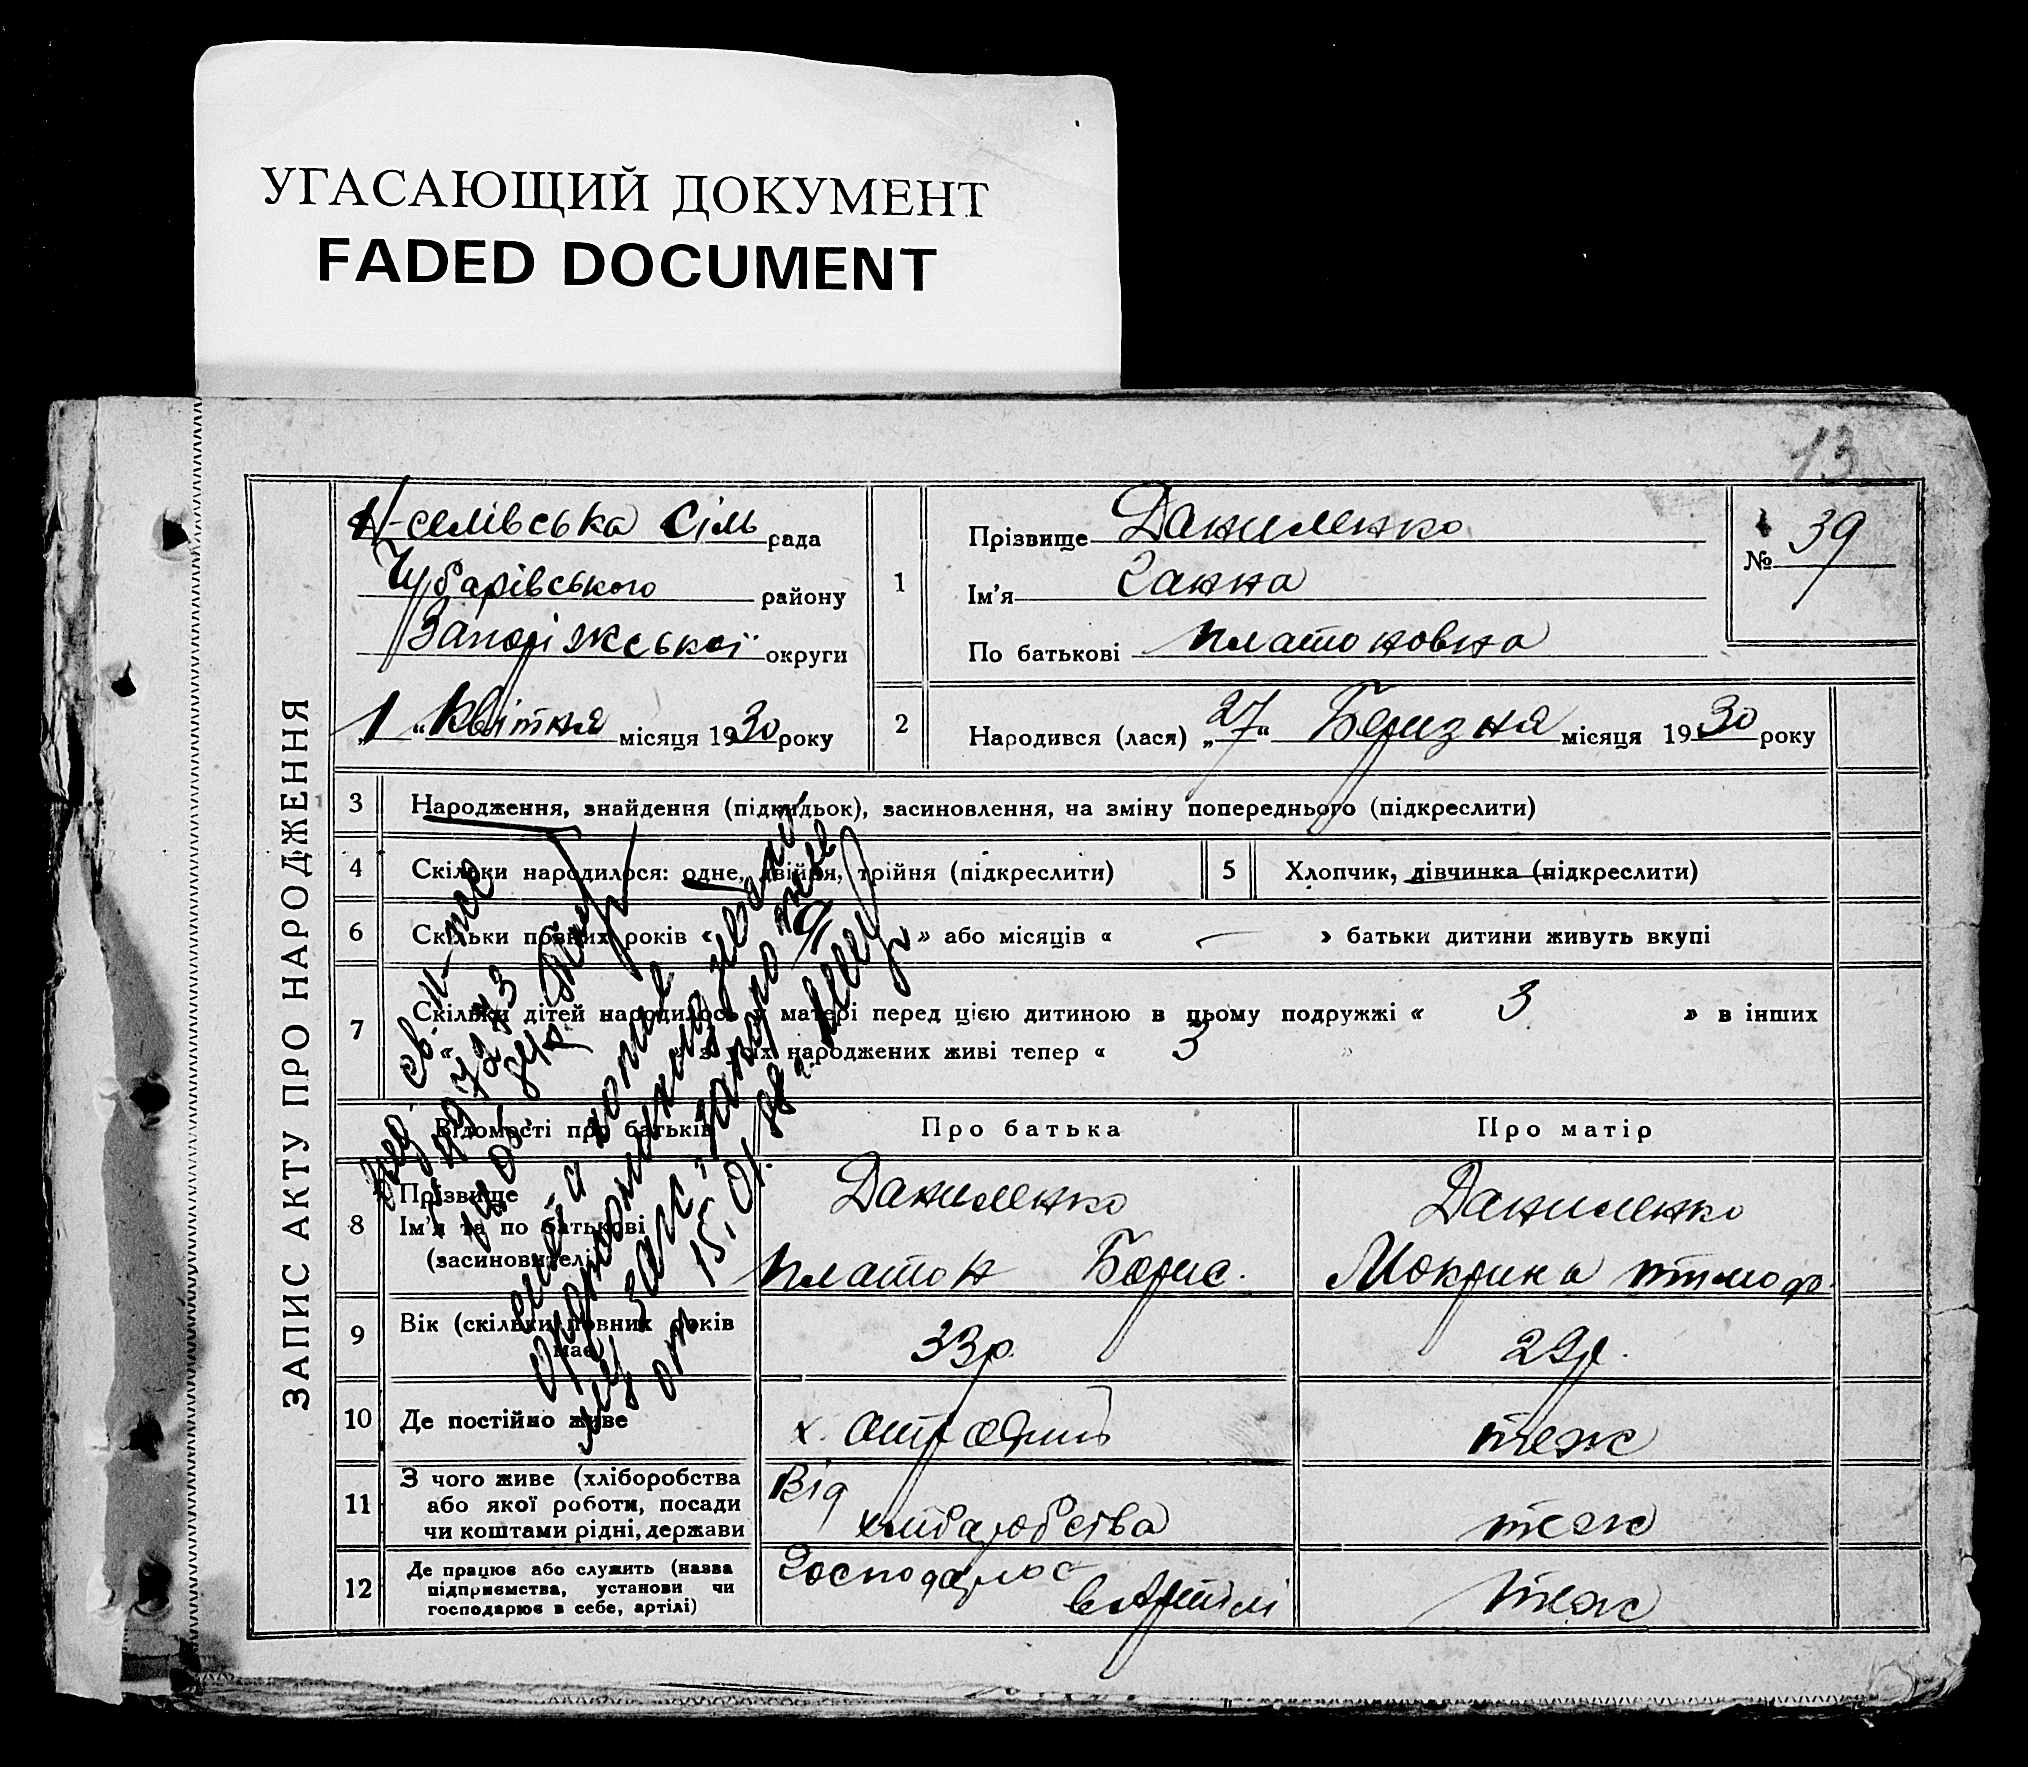 УГАСАЮЩИЙ ДОКУМЕНТ
FADED DOCUMENT
13
ЗАПИС АКТУ ПРО НАРОДЖЕННЯ
Н-селівська Сіль рада
Чубарівського району
Запоріжської округи
„1“ Квітня місяця 1930 року
1
Прізвище Даниленко
Ім'я Ганна
По батькові Платоновна
№ 39
2
Народився (лася) „27“ Березня місяця 1930 року
3 Народження, знайдення (підкидьок), засиновлення, на зміну попереднього (підкреслити)
4 Скільки народилося: одне, двійня, трійня (підкреслити)
5 Хлопчик, дівчинка (підкреслити)
6 Скільки повних років « » або місяців « — » батьки дитини живуть вкупі
7 Скільки дітей народилось у матері перед цією дитиною в цьому подружжі « 3 » в інших
« » з усіх народжених живі тепер « 3 »
Відомості про батьків
Про батька
Про матір
8 Прізвище
Ім'я та по батькові
(засиновителі)
Даниленко
Платон Борис.
Даниленко
Мокрина Тимоф.
9 Вік (скільки повних років
має)
33р.
29р.
10 Де постійно живе
х.
теж
11 З чого живе (хліборобства
або якої роботи, посади
чи коштами рідні, держави
Від
хліборобства
теж
12 Де працює або служить (назва
підприємства, установи чи
господарює в себе, артілі)
Господарює
в Артілі
теж
15.01.98